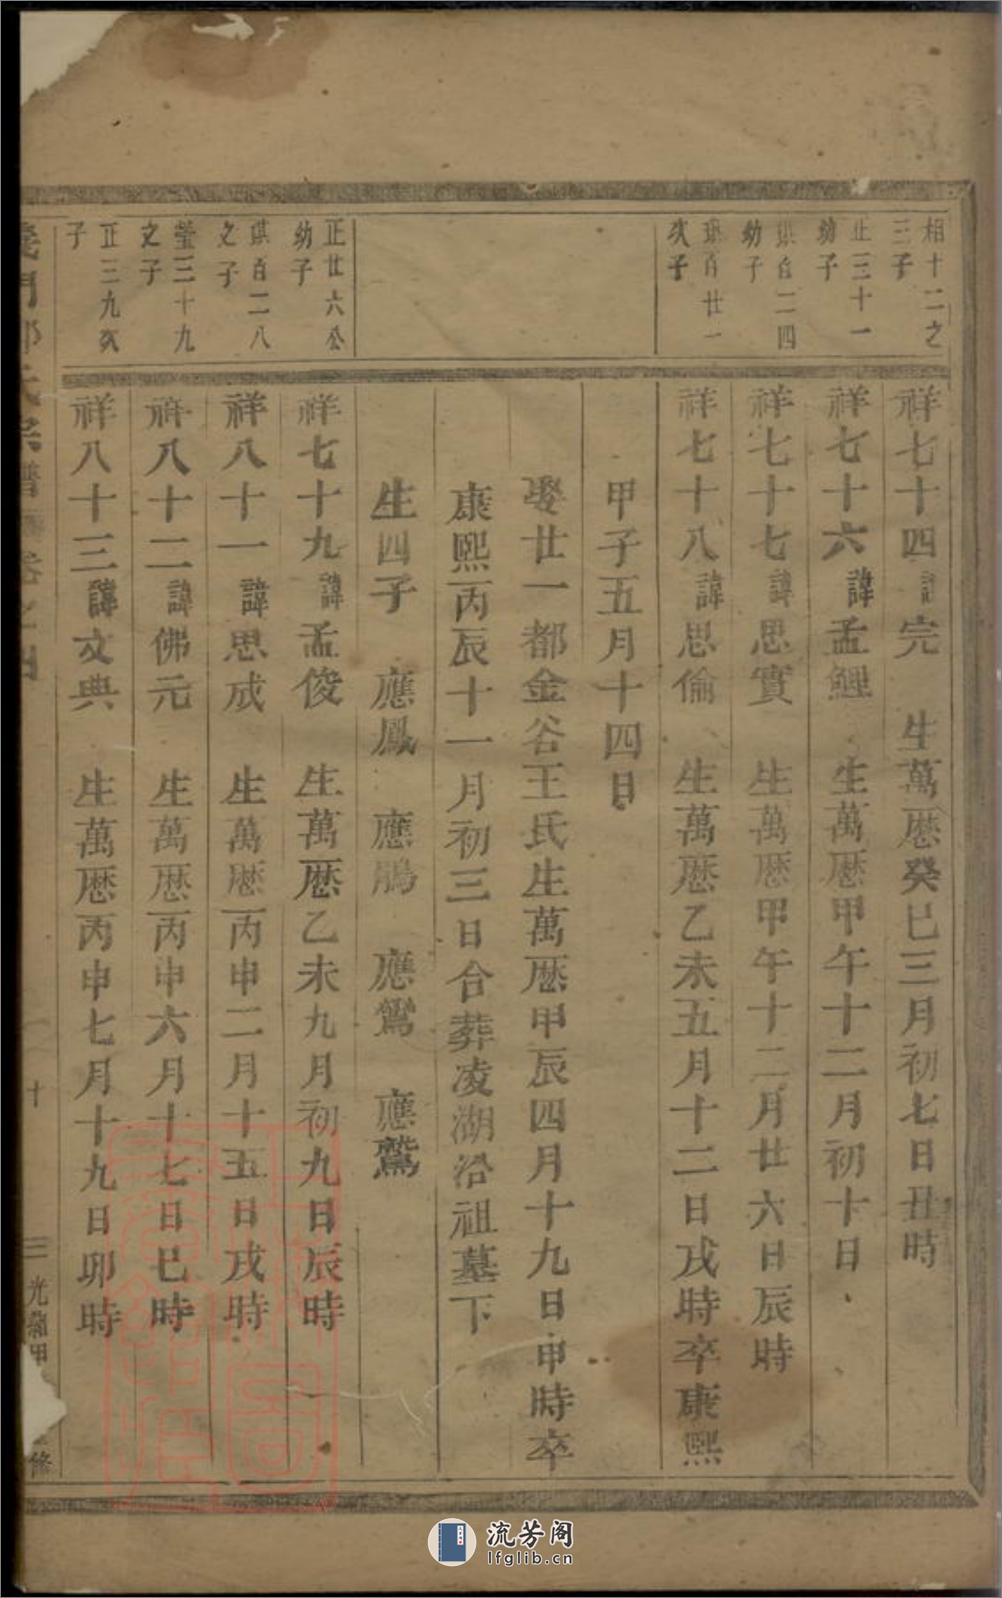 相十二之
三子
祥七十四諱完　生萬厯癸巳三月初七日丑時
正三十一
幼子
祥七十六諱孟鯉　生萬厯甲午十二月初十日
琪百二四
幼子
祥七十七諱思實　生萬厯甲午十二月廿六日辰時
百廿一
次子
祥七十八諱思倫　生萬厯乙未五月十二日戌時卒康熙
甲子五月十四日
娶廿一都金谷王氏生萬厯甲辰四月十九日申時卒
康熙丙辰十一月初三日合葬凌湖沿祖墓下
生四子　應鳳　應鵰　應鸞　應鷲
正廿六公
幼子
祥七十九諱孟俊　生萬厯乙未九月初九日辰時
琪百二八
之子
祥八十一諱思成　生萬厯丙申二月十五日戌時
瑩三十九
之子
祥八十二諱佛元　生萬厯丙申六月十七日巳時
正三九次
子
祥八十三諱文典　生萬厯丙申七月十九日卯時
義門鄭氏宗譜　卷之四
十
三　光緒甲　修
流芳阁
lfglib.cn